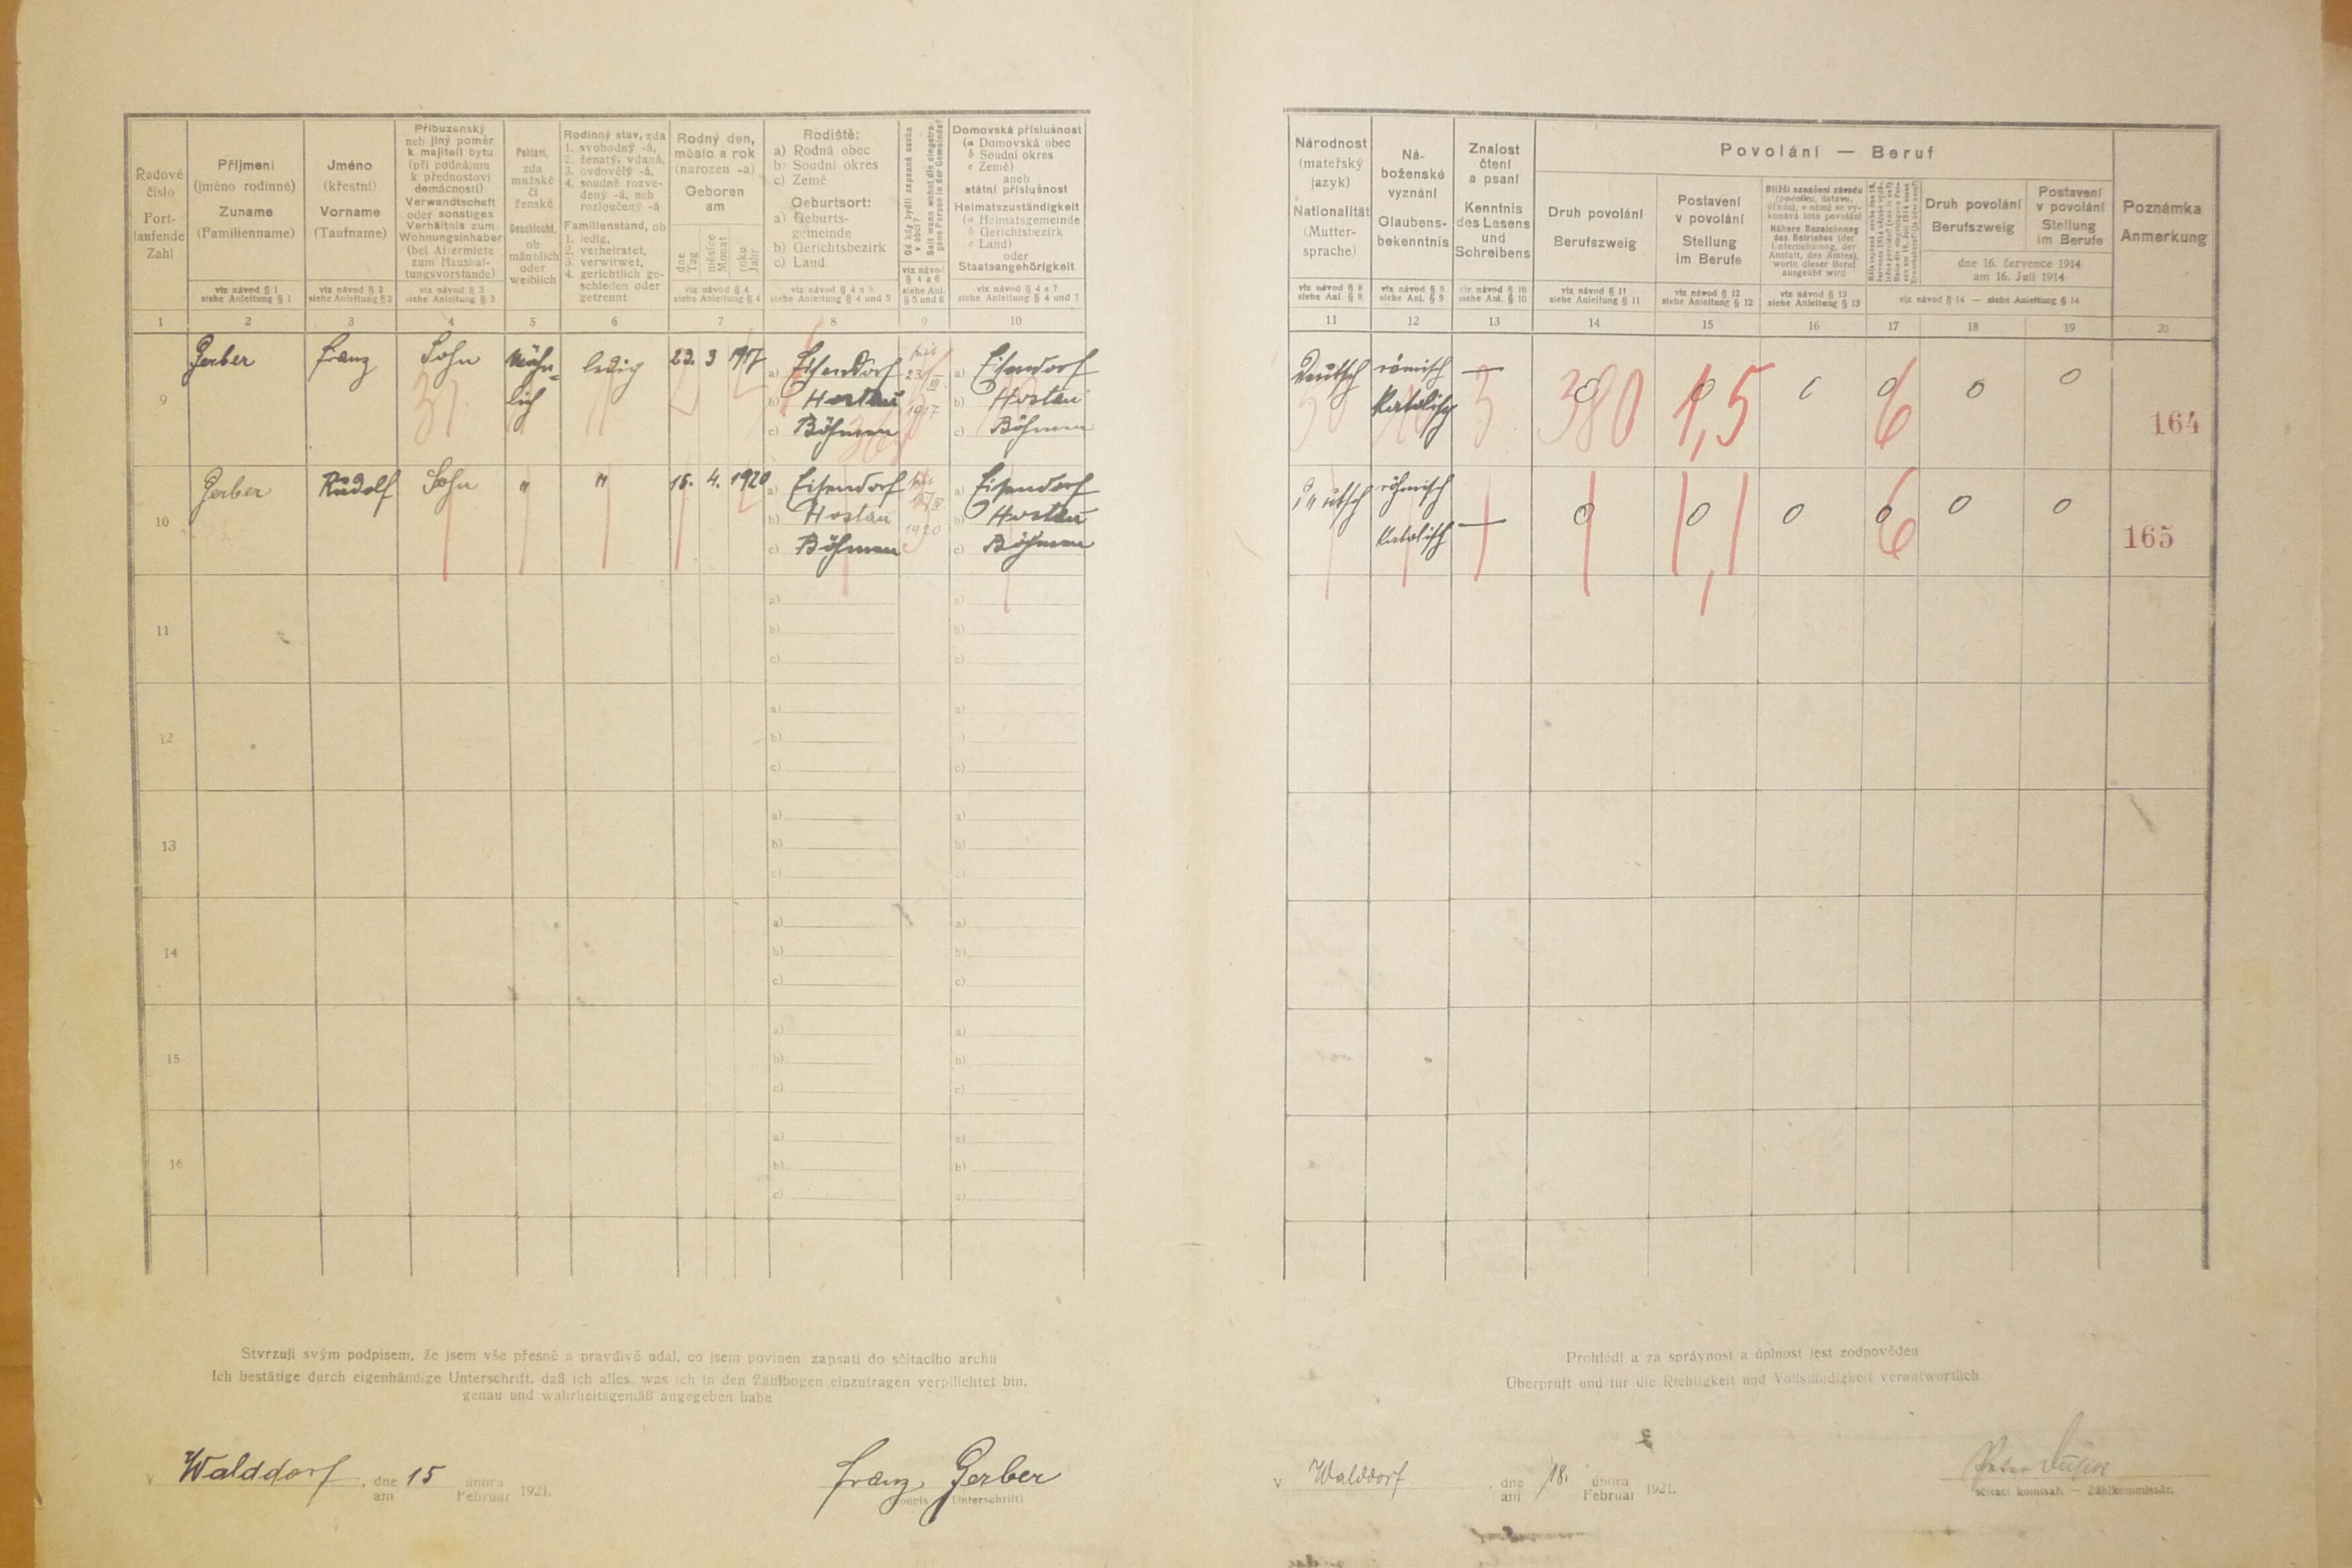 Řadové
číslo
Fort-
laufende
Zahl
Příjmení
(jméno rodinné)
Zuname
(Familienname)
viz návod § 1
siehe Anleitung § 1
Jméno
(křestní)
Vorname
(Taufname)
viz návod § 2
siehe Anleitung § 2
Příbuzenský
neb jiný poměr
k majiteli bytu
(při podnájmu
k přednostovi
domácnosti)
Verwandtschaft
oder sonstiges
Verhältnis zum
Wohnungsinhaber
(bei Aftermiete
zum Haushal-
tungsvorstande)
viz návod § 3
siehe Anleitung § 3
Pohlaví,
zda
mužské
či
ženské
Geschlecht,
ob
männlich
oder
weiblich
Rodinný stav, zda
1. svobodný -á,
2. ženatý, vdaná,
3. ovdovělý -á,
4. soudně rozve-
dený -á, neb
rozloučený -á
Familienstand, ob
1. ledig,
2. verheiratet,
3. verwitwet,
4. gerichtlich ge-
schieden oder
getrennt
Rodný den,
měsíc a rok
(narozen -a)
Geboren
am
dne
Tag
měsíce
Monat
roku
Jahr
viz návod § 4
siehe Anleitung § 4
Rodiště:
a) Rodná obec
b) Soudní okres
c) Země
Geburtsort:
a) Geburts-
gemeinde
b) Gerichtsbezirk
c) Land
viz návod § 4 a 5
siehe Anleitung § 4 und 5
Od kdy bydlí zapsaná osoba
v obci?
Seit wann wohnt die eingetra-
gene Person in der Gemeinde?
viz návod
§ 4 a 6
siehe Anl.
§ 5 und 6
Domovská příslušnost
(a Domovská obec
b Soudní okres
c Země)
aneb
státní příslušnost
Heimatszuständigkeit
(a Heimatsgemeinde
b Gerichtsbezirk
c Land)
oder
Staatsangehörigkeit
viz návod § 4 a 7
siehe Anleitung § 4 und 7
Národnost
(mateřský
jazyk)
Nationalität
(Mutter-
sprache)
viz návod § 8
siehe Anl. § 8
Ná-
boženské
vyznání
Glaubens-
bekenntnis
viz návod § 9
siehe Anl. § 9
Znalost
čtení
a psaní
Kenntnis
des Lesens
und
Schreibens
viz návod § 10
siehe Anl. § 10
Povolání — Beruf
Druh povolání
Berufszweig
viz návod § 11
siehe Anleitung § 11
Postavení
v povolání
Stellung
im Berufe
viz návod § 12
siehe Anleitung § 12
Bližší označení závodu
(podniku, ústavu,
úřadu), v němž se vy-
konává toto povolání
Nähere Bezeichnung
des Betriebes (der
Unternehmung, der
Anstalt, des Amtes),
worin dieser Beruf
ausgeübt wird
viz návod § 13
siehe Anleitung § 13
Druh povolání
Berufszweig
Postavení
v povolání
Stellung
im Berufe
dne 16. července 1914
am 16. Juli 1914
viz návod § 14 — siehe Anleitung § 14
Poznámka
Anmerkung
1 2 3 4 5 6 7 8 9 10 11 12 13 14 15 16 17 18 19 20
9 Gerber Franz Sohn männ- ledig 23. 3 1917 a) Eisendorf seit 23/III a) Eisendorf Deutsch römisch — 0 0 0 0 0 0
lich b) Hostau 1917 b) Hostau Katolisch 3 380 1,5 6 164
c) Böhmen c) Böhmen
10 Gerber Rudolf Sohn " " 15. 4. 1920 a) Eisendorf seit 15/IV a) Eisendorf Deutsch röhmisch
b) Hostau 1920 b) Hostau Katolisch — 0 0 0 0 0 0 6 165
c) Böhmen c) Böhmen
11 a) a)
b) b)
c) c)
12 a) a)
b) b)
c) c)
13 a) a)
b) b)
c) c)
14 a) a)
b) b)
c) c)
15 a) a)
b) b)
c) c)
16 a) a)
b) b)
c) c)
Stvrzuji svým podpisem, že jsem vše přesně a pravdivě udal, co jsem povinen zapsati do sčítacího archu
Ich bestätige durch eigenhändige Unterschrift, daß ich alles, was ich in den Zählbogen einzutragen verpflichtet bin,
genau und wahrheitsgemäß angegeben habe
V Walddorf, dne 15 února 1921.
am Februar
Franz Gerber
(podpis Unterschrift)
Prohlédl a za správnost a úplnost jest zodpověden
Überprüft und für die Richtigkeit und Vollständigkeit verantwortlich
V Walddorf, dne 18. února 1921.
am Februar
Peter
sčítací komisař. — Zählkommissär.